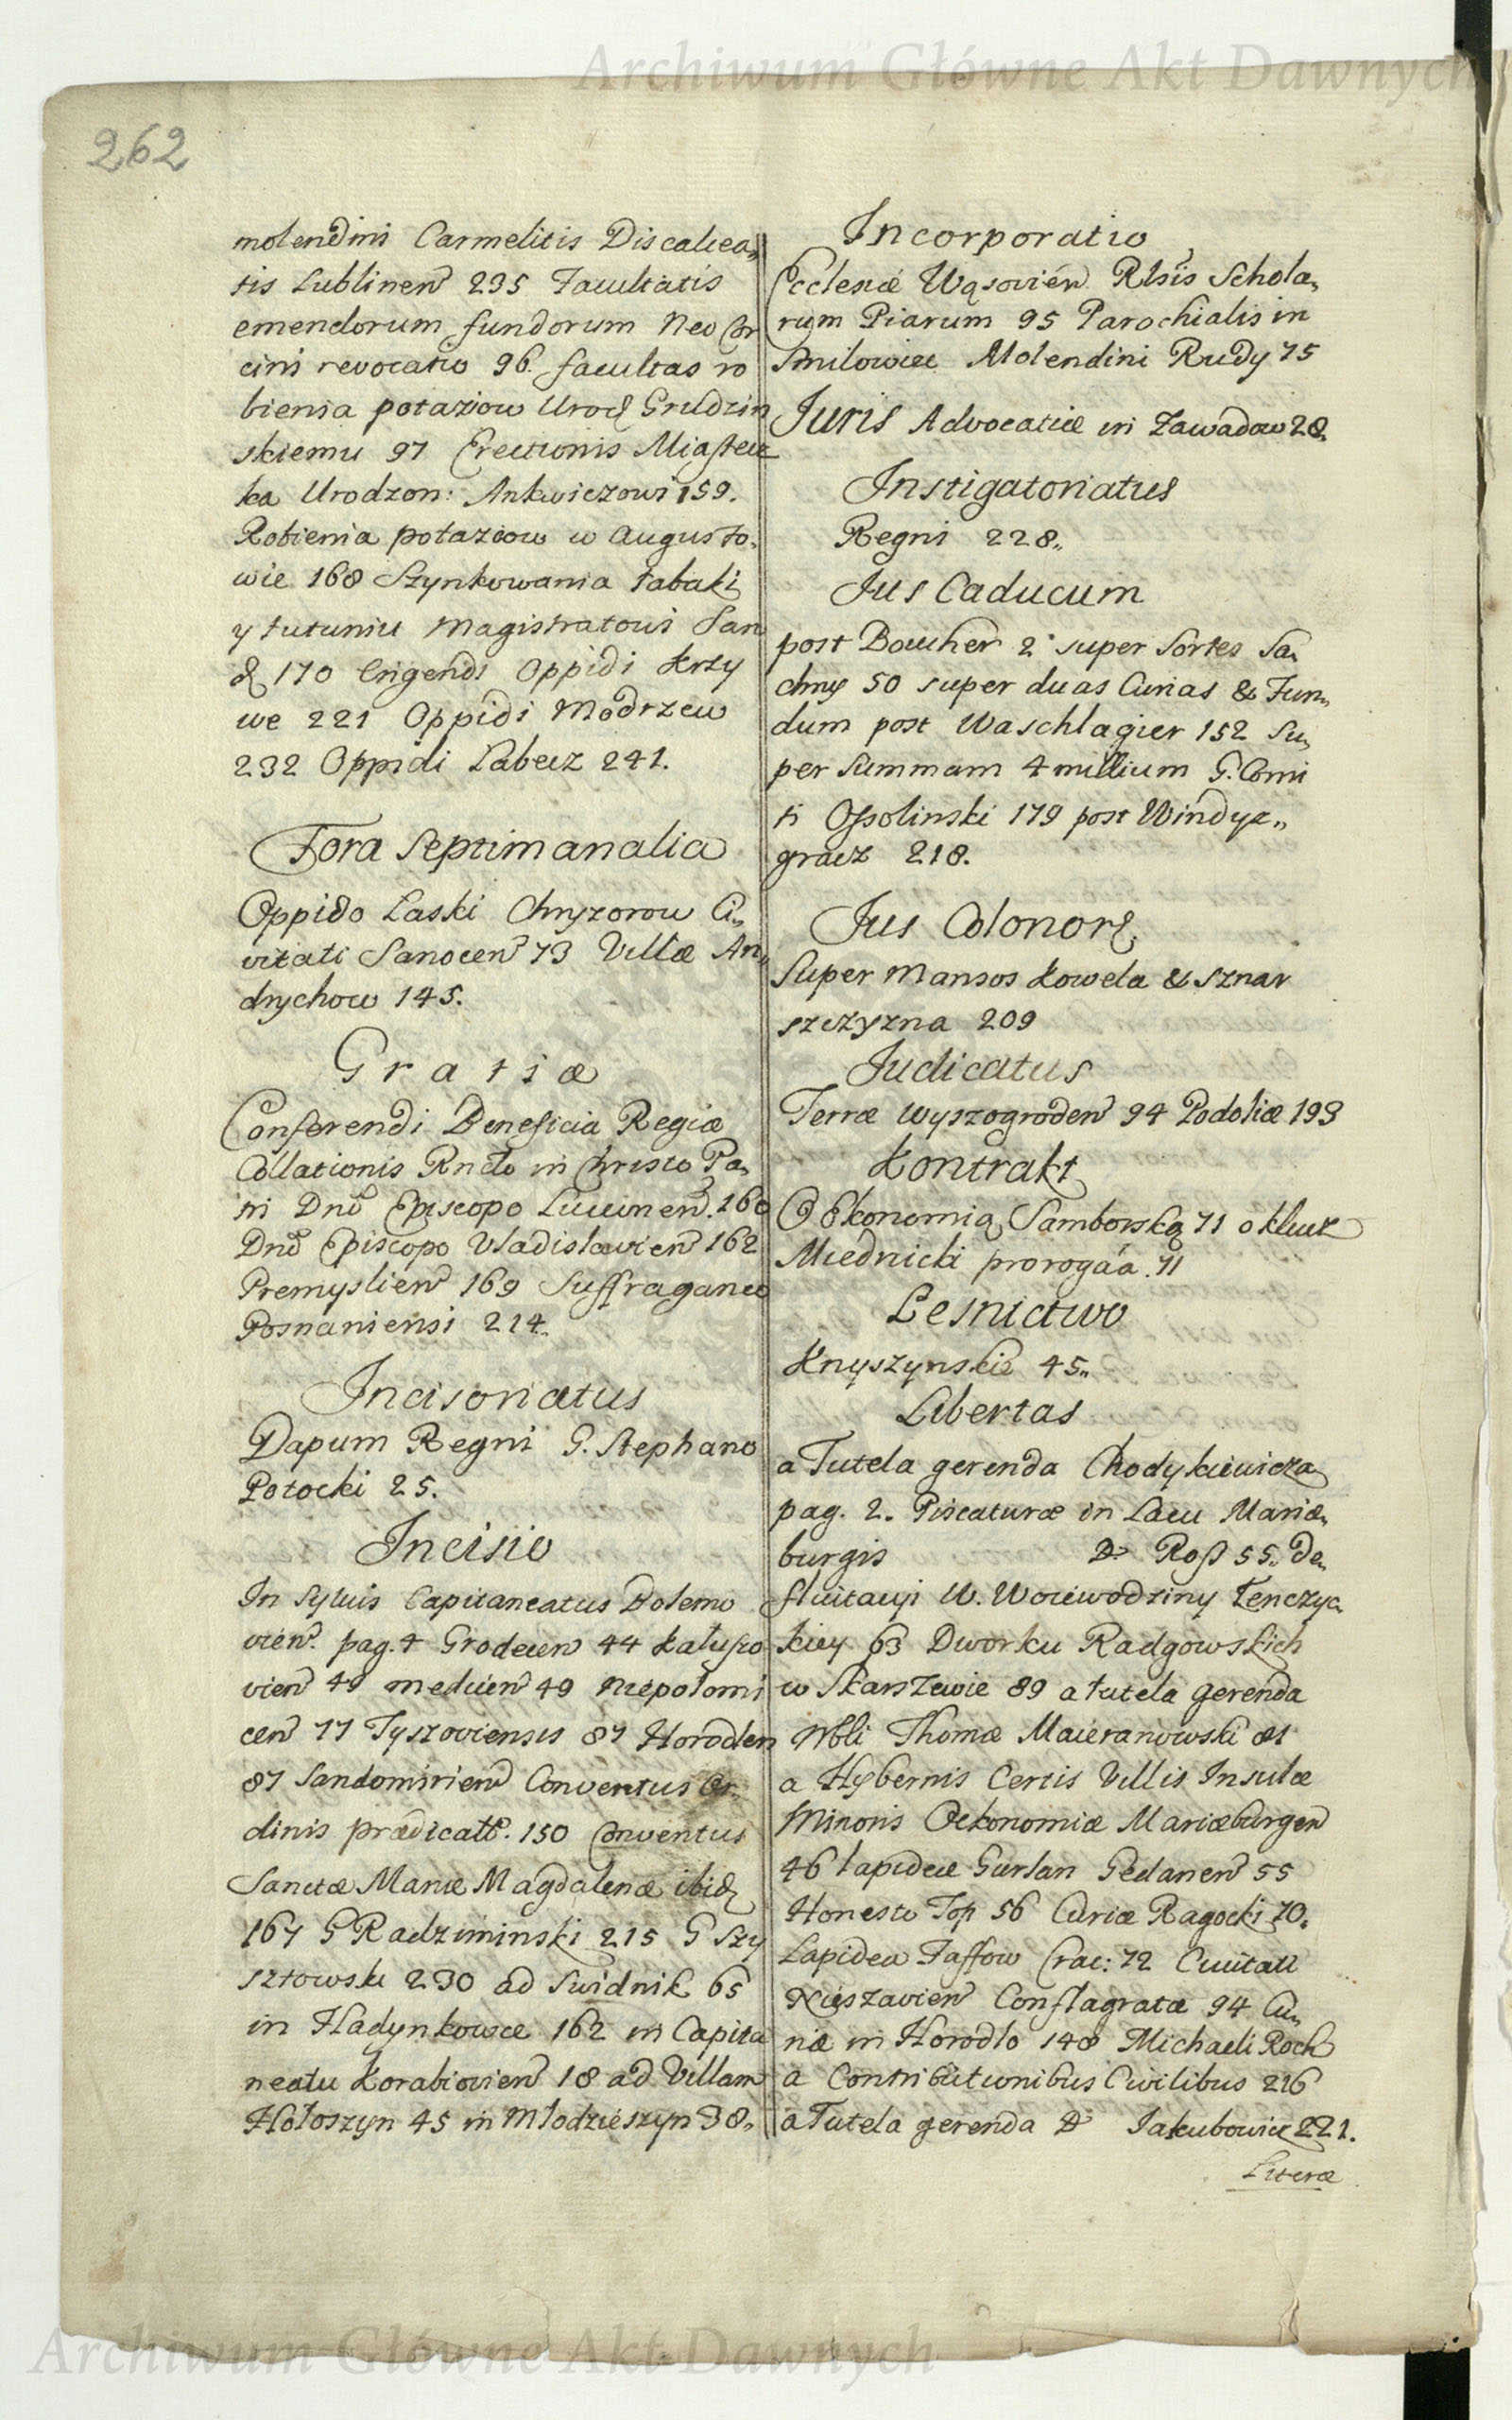 Archiwum Główne Akt Dawnych
262
molendini Carmelitis Discalcea„
tis Lublinen 235 Facultatis
emendorum fundorum Neo Cor
cini revocatio 96. facultas ro
bienia potaziow Urod Grudzin
skiemu 97 Erectionis Miastecz
ka Urodzon: Ankwiczowi 159.
Robienia potaziow w Augusto„
wie 168 Szynkowania tabaki
y tutuniu Magistratowi San
d 170 Erigendi Oppidi Krzy
we 221 Oppidi Modrzew
232 Oppidi Labecz 241.
Fora Septimanalia
Oppido Laski Chryzorow Ci„
vitati Sanocen 73 Villæ An„
drychow 145.
Gratiæ
Conferendi Beneficia Regiæ
Collationis Rndo in Christo Pa„
tri Dno Episcopo Luceinen. 160
Dno Episcopo Vladislavien 162
Premyslien 169 Suffraganeo
Posnaniensi 214.
Incisoriatus
Dapum Regni G. Stephano
Potocki 25.
Incisio
In Sylvis Capitaneatus Bolemo
vien. pag. 4 Grodecen 44 Kaluszo
vien 49 medicien 49 Niepolomi
cen 77 Tyszoviensis 87 Horodlen
87 Sandomirien Conventus Or„
dinis prædicatt. 150 Conventus
Sanctæ Mariæ Magdalenæ ibid
167 G Radziminski 215 G Szy
sztowski 230 ad Swidnik 65
in Hadynkowce 162 in Capita
neatu Korabiovien 18 ad Villam
Hołoszyn 45 in Młodzieszyn 38„
Incorporatio
Ecclesiæ Wąsovien Rlsis Schola„
rum Piarum 95 Parochialis in
Smilowice Molendini Rudy 75
Juris Advocatiæ in Zawadow 28.
Instigatoriatus
Regni 228„
Jus Caducum
post Boucher 2. super Sortes Sa„
chny 50 super duas Curias & Fun„
dum post Waschlagier 152 Su„
per Summam 4 millium G. Comi
ti Ossolinski 179 post Windyz„
gracz 218.
Jus Colonor
Super Mansos Kowela & Sznar
szczyzna 209
Judicatus
Terræ Wyszogroden 94 Podoliæ 193
Kontrakt
O Ekonomią Samborską 71 o klucz
Miednicki prorogáa. 71
Lesnictwo
Knyszynskie 45„
Libertas
a Tutela gerenda Chodykiewicza
pag. 2. Piscaturæ in Lacu Mariæ„
burgis D Ross 55. De„
fluitacyi W. Woiewodziny Łenczyc„
kiey 63 Dworku Radgowskich
w Skarszewie 89 a tutela gerenda
Nbli Thomæ Maieranowski 81
a Hybernis Certis Villis Insulæ
Minoris Oekonomiæ Mariæburgen
46 lapideæ Gurlan Gedanen 55
Honesto Top 56 Curiæ Ragocki 70.
Lapidea Jaffow Crac: 72 Civitati
Nieszavien Conflagratæ 94 Cu„
riæ in Horodlo 148 Michaeli Roch
a Contributionibus Civilibus 216
a Tutela gerenda D Jakubowicz 221.
Literæ
Archiwum Główne Akt Dawnych